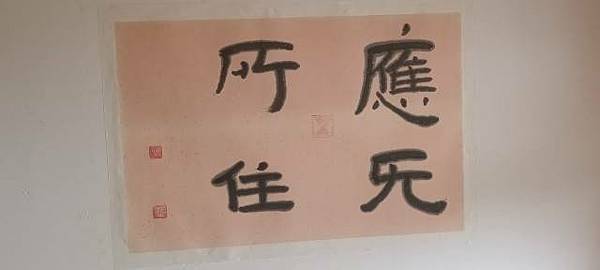 應无
所住